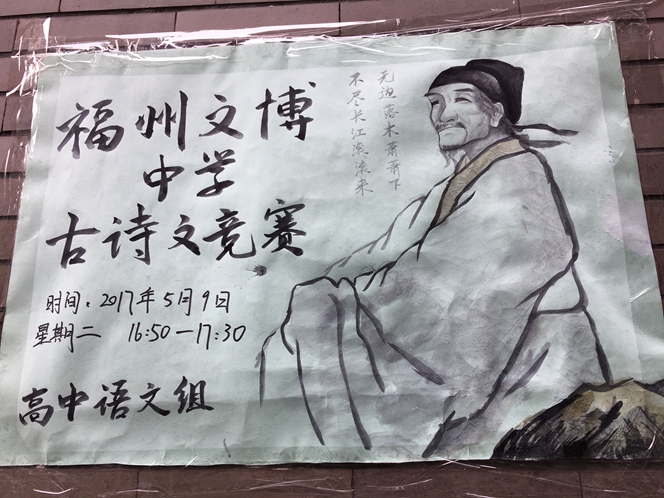 福州文博
中学
古诗文竞赛
时间：2017年5月9日
星期二 16:50—17:30
高中语文组
无边落木萧萧下
不尽长江滚滚来